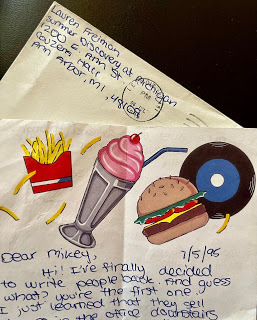 Lauren Freiman
Summer Discovery at Michigan
1200 E. Ann St
Couzens Hall
Ann Arbor, MI, 48109
PM
Dear Mikey,
7/5/95
Hi! I've finally decided
to write people back. And guess
what? you're the first one.
I just learned that they sell
in the office downstairs